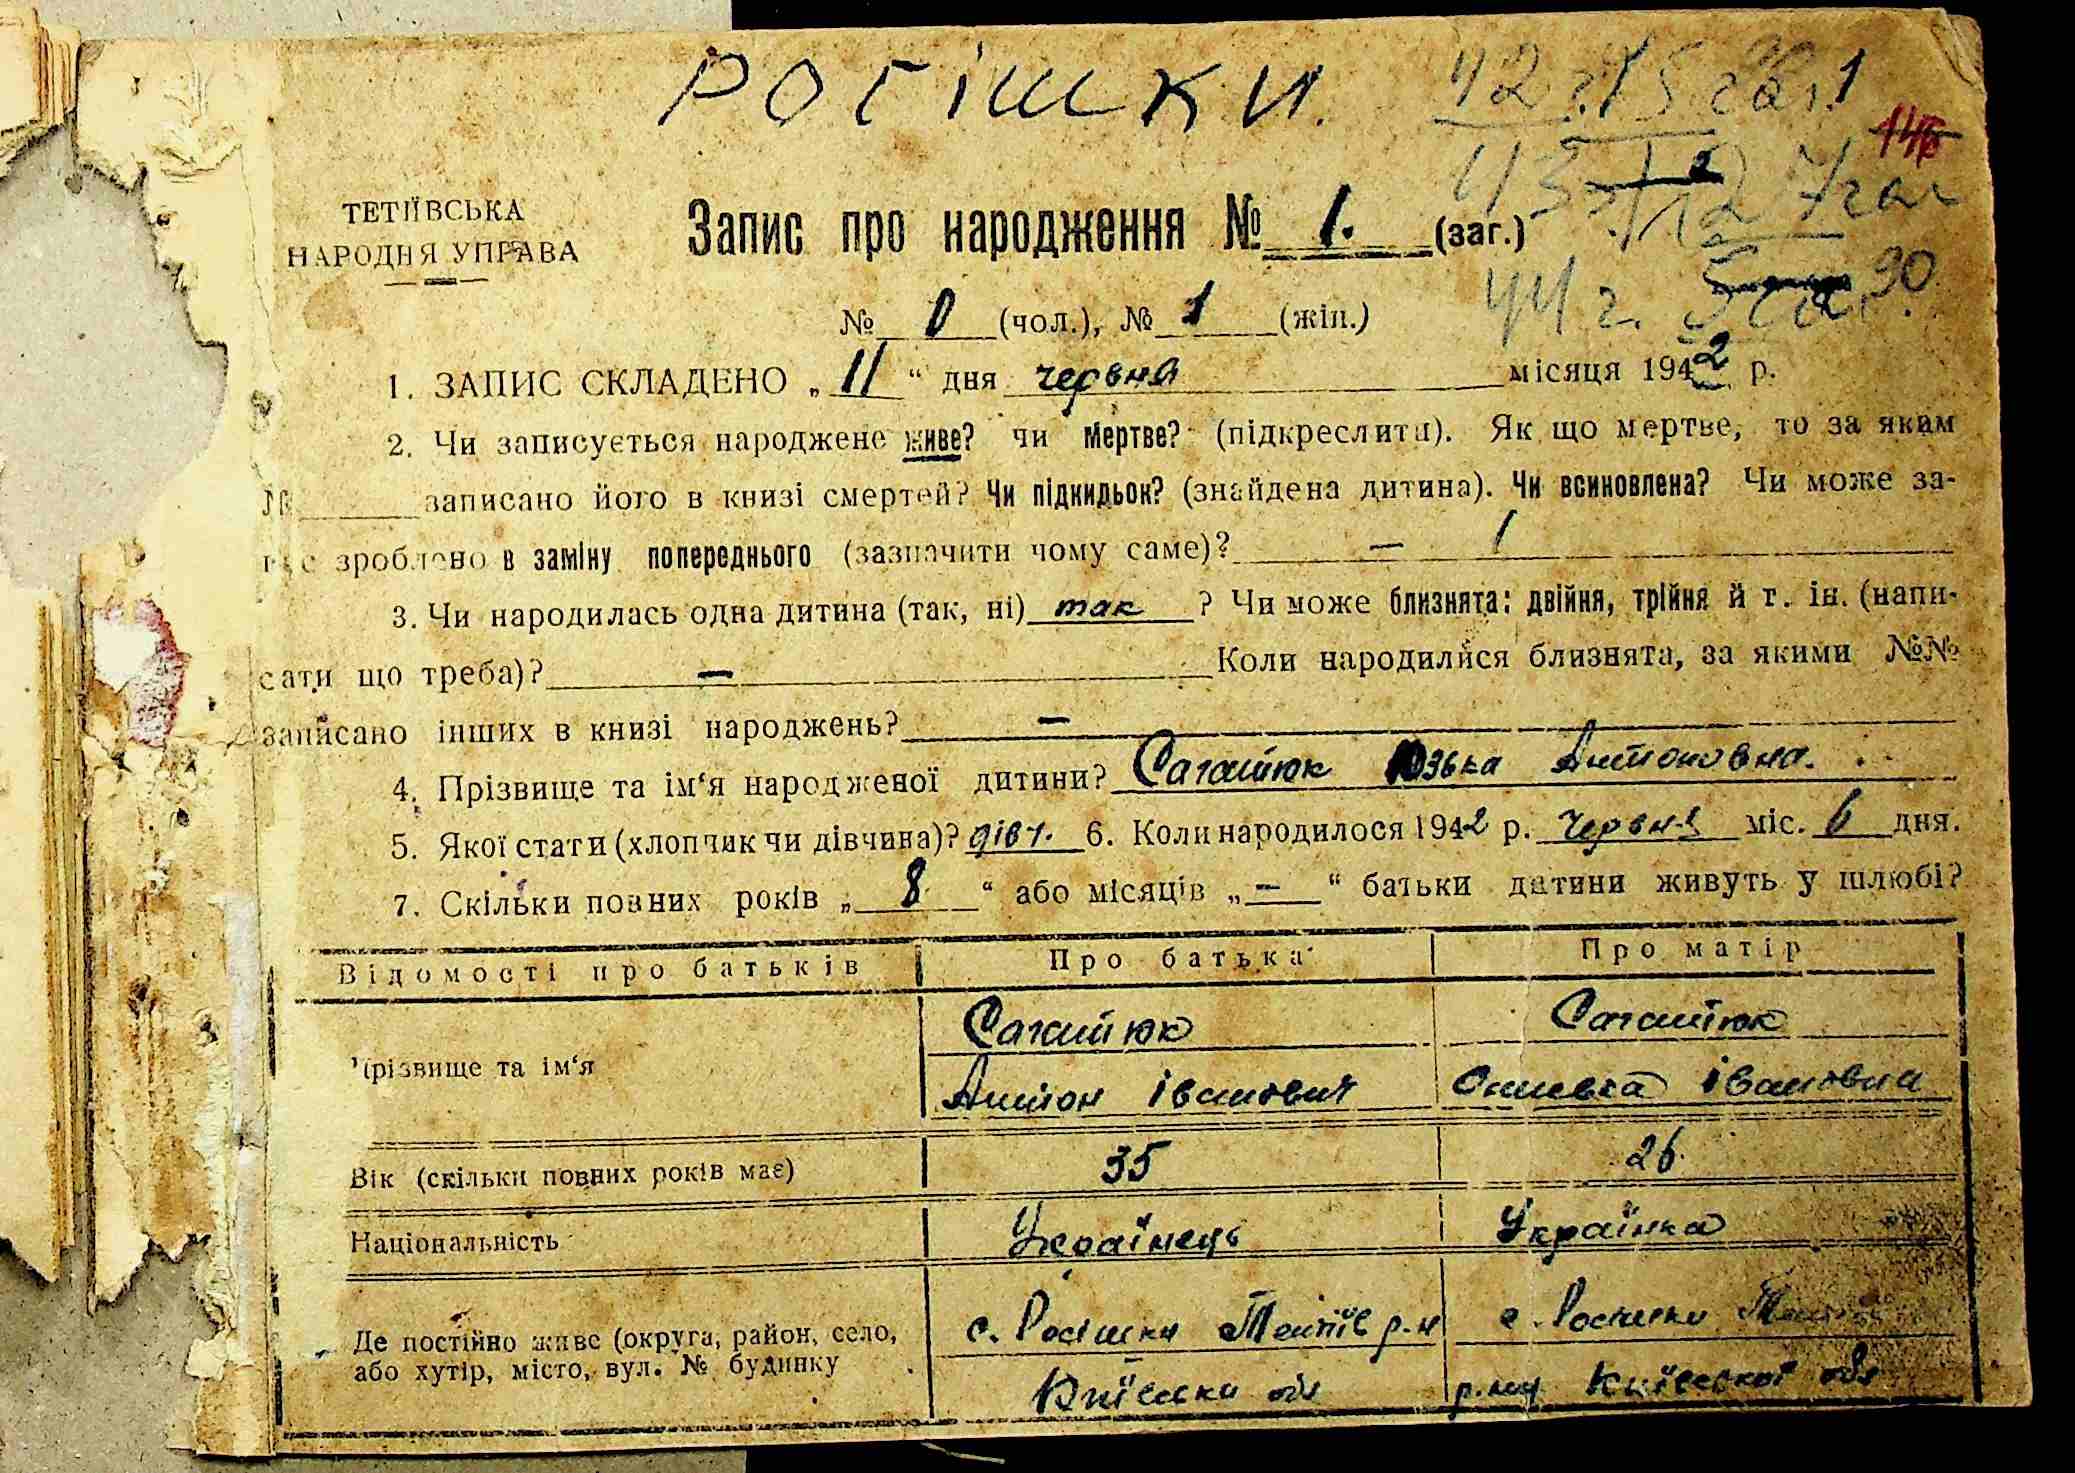 РОСІШКИ.
ТЕТІЇВСЬКА
НАРОДНЯ УПРАВА
Запис про народження № 1. (заг.)
№ 0 (чол.), № 1 (жін.)
1. ЗАПИС СКЛАДЕНО „ 11 “ дня червня місяця 1942 р.
2. Чи записується народжене живе? чи мертве? (підкреслити). Як що мертве, то за яким
№ записано його в книзі смертей? Чи підкидьок? (знайдена дитина). Чи всиновлена? Чи може за-
пис зроблено в заміну попереднього (зазначити чому саме)? —
3. Чи народилась одна дитина (так, ні) так ? Чи може близнята: двійня, трійня й т. ін. (напи-
сати що треба)? — Коли народилися близнята, за якими №№
записано інших в книзі народжень? —
4. Прізвище та ім‘я народженої дитини? Сагайтюк Юзька Антоновна.
5. Якої стати (хлопчик чи дівчина)? дівч. 6. Коли народилося 1942 р. червня міс. 6 дня.
7. Скільки повних років „ 8 “ або місяців „ — “ батьки дитини живуть у шлюбі?
Відомості про батьків Про батька Про матір
Прізвище та ім‘я
Сагайтюк Сагайтюк
Антон Іванович Івановна
Вік (скільки повних років має) 35 26
Національність Українець Українка
Де постійно живе (округа, район, село,
або хутір, місто, вул. № будинку
с. Росішки Тетіїв р-н с. Росішки
обл Київської обл